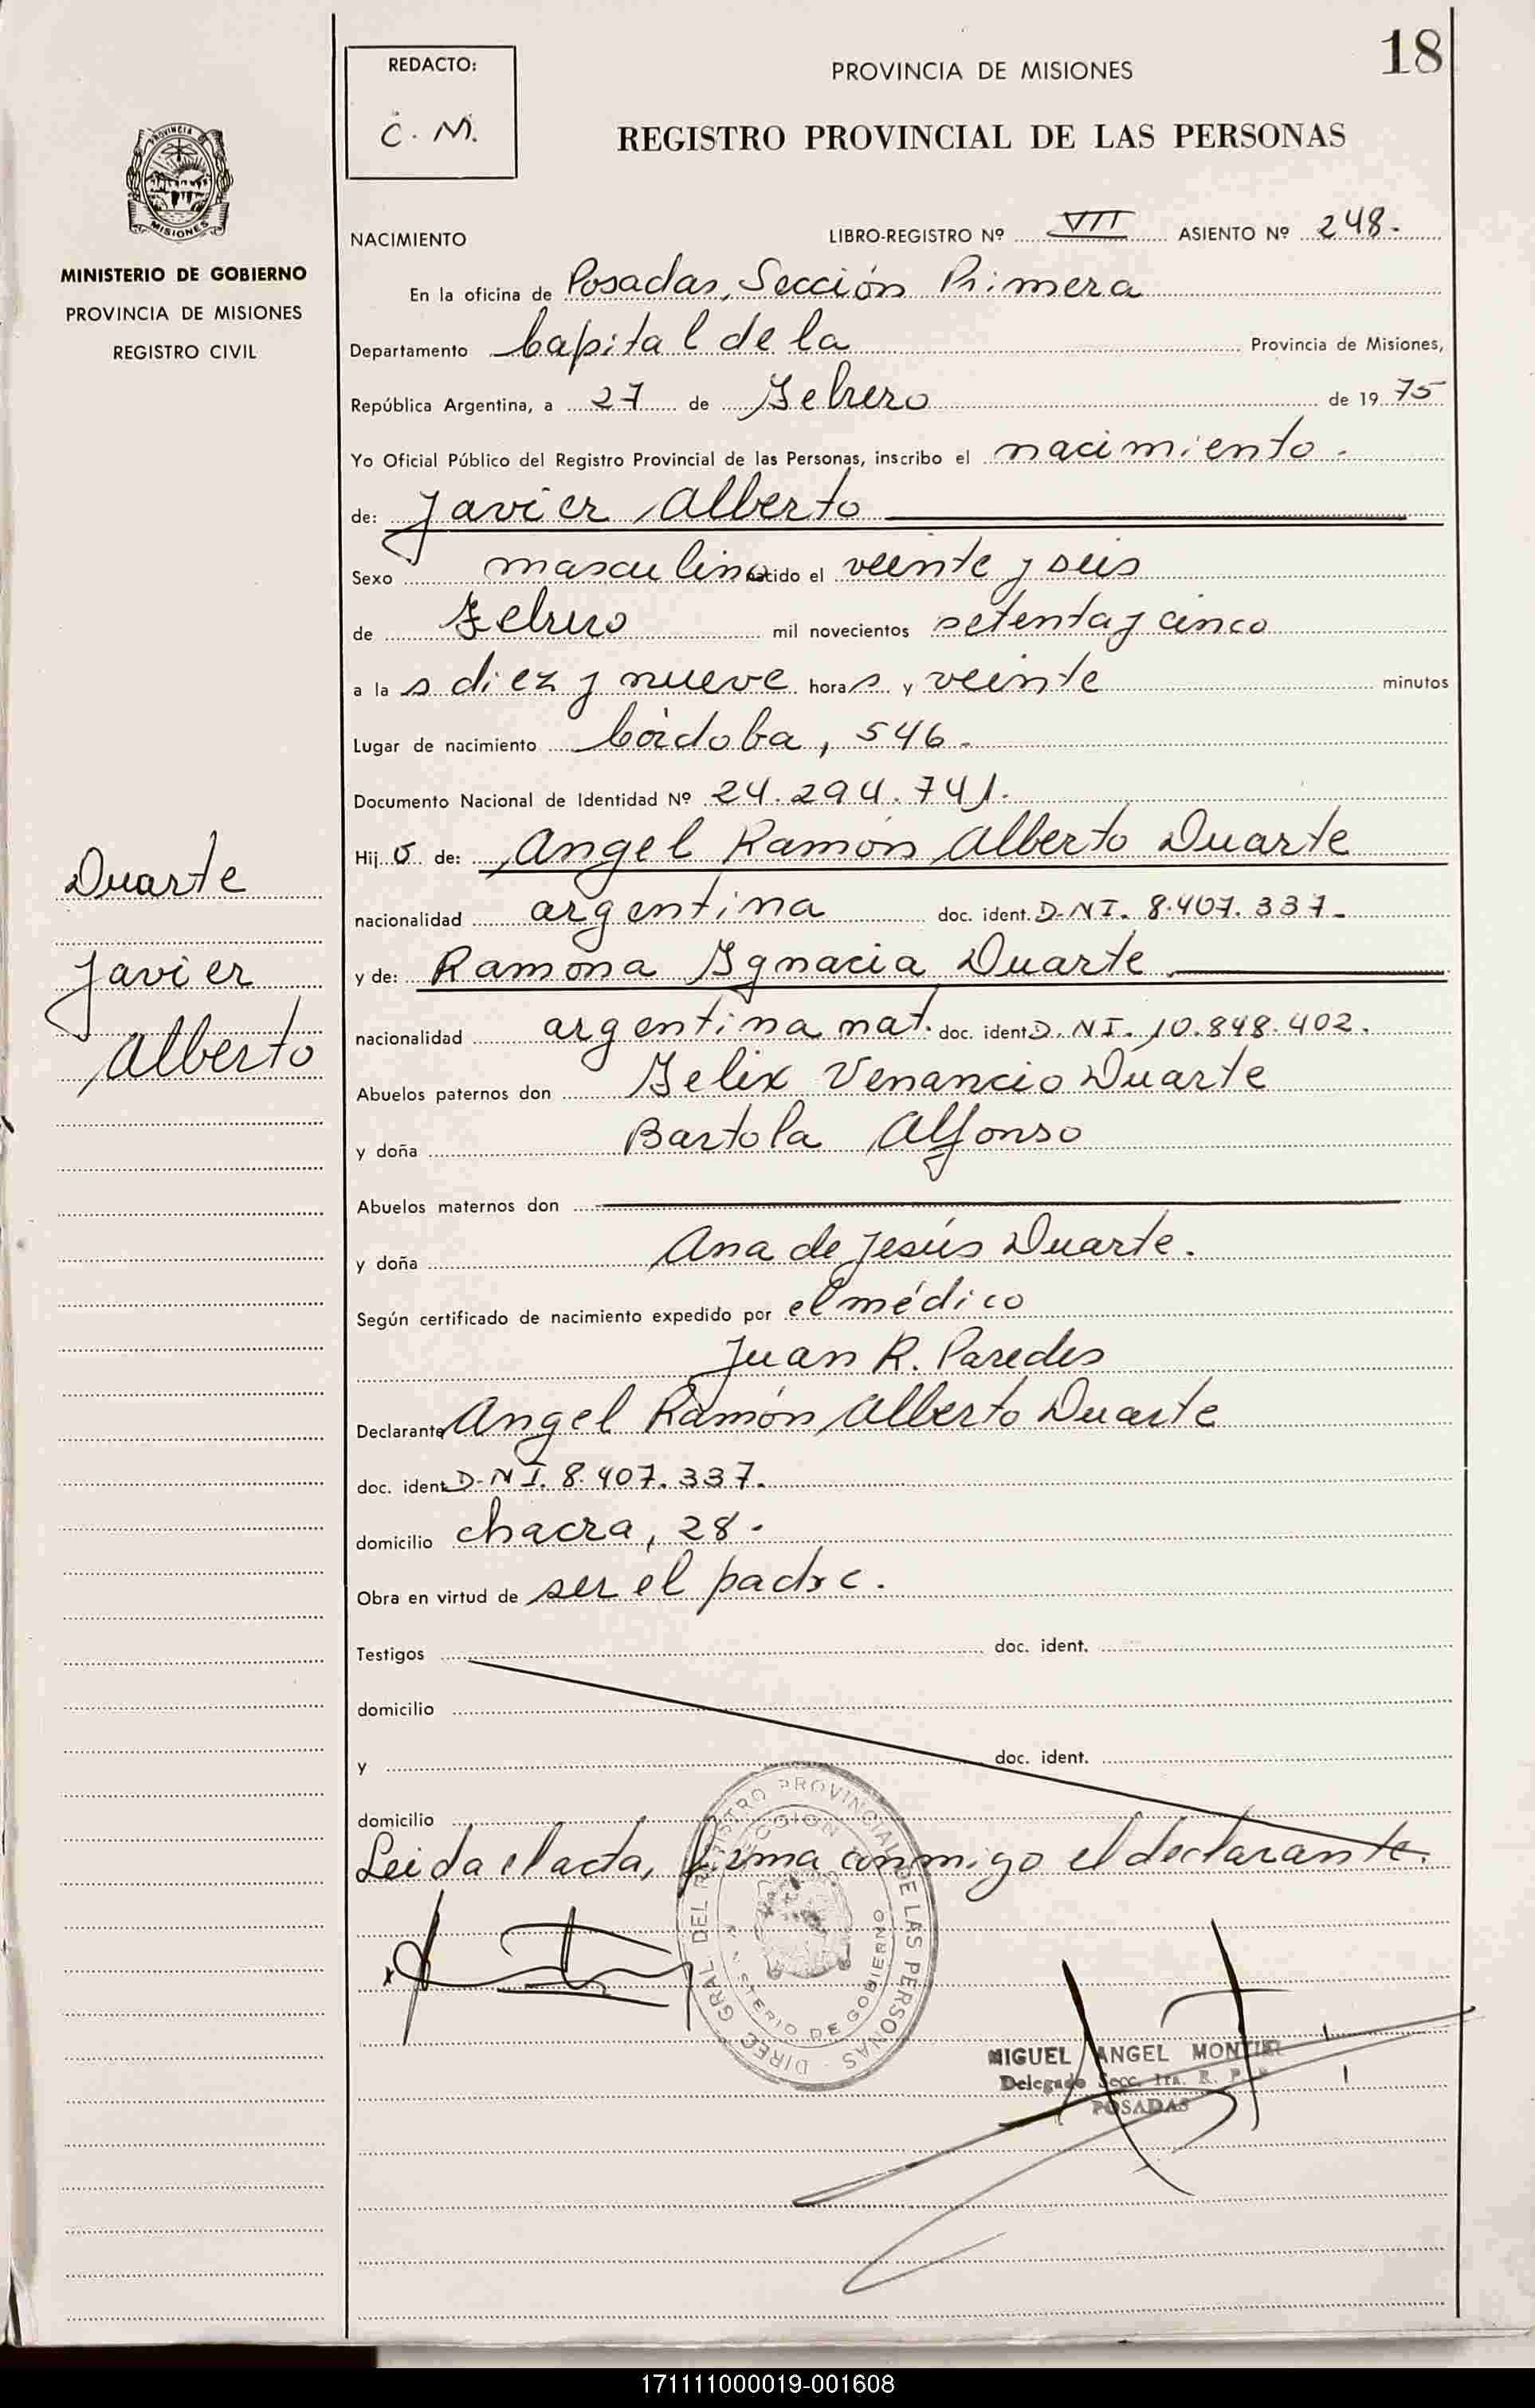 18
REDACTO:
C. M.
PROVINCIA DE MISIONES
REGISTRO PROVINCIAL DE LAS PERSONAS
PROVINCIA
MISIONES
MINISTERIO DE GOBIERNO
PROVINCIA DE MISIONES
REGISTRO CIVIL
NACIMIENTO LIBRO-REGISTRO Nº VII ASIENTO Nº 248.
En la oficina de Posadas, Sección Primera
Departamento Capital de la Provincia de Misiones,
República Argentina, a 27 de Febrero de 1975
Yo Oficial Público del Registro Provincial de las Personas, inscribo el nacimiento.
de: Javier Alberto
Sexo masculino nacido el veinte y seis
de Febrero mil novecientos setenta y cinco
a las diez y nueve horas y veinte minutos
Lugar de nacimiento Córdoba, 546.
Documento Nacional de Identidad Nº 24.294.741.
Hijo de: Angel Ramón Alberto Duarte
nacionalidad argentina doc. ident. D-N I. 8.407.337.
y de: Ramona Ygnacia Duarte
nacionalidad argentina nat. doc. ident D. N I. 10.848.402.
Abuelos paternos don Felix Venancio Duarte
y doña Bartola Alfonso
Abuelos maternos don
y doña Ana de Jesús Duarte.
Según certificado de nacimiento expedido por el médico
Juan R. Paredes
Declarante Angel Ramón Alberto Duarte
doc. ident D-N I. 8.407.337.
domicilio chacra, 28.
Obra en virtud de ser el padre.
Testigos doc. ident.
domicilio
y doc. ident.
domicilio
Leida el acta, firma conmigo el declarante.
Duarte
Javier
Alberto
DIREC. GRAL DEL REGISTRO PROVINCIAL DE LAS PERSONAS
MINISTERIO DE GOBIERNO
MIGUEL ANGEL MONTIEL
Delegado Secc. 1ra. R. P.
POSADAS
171111000019-001608